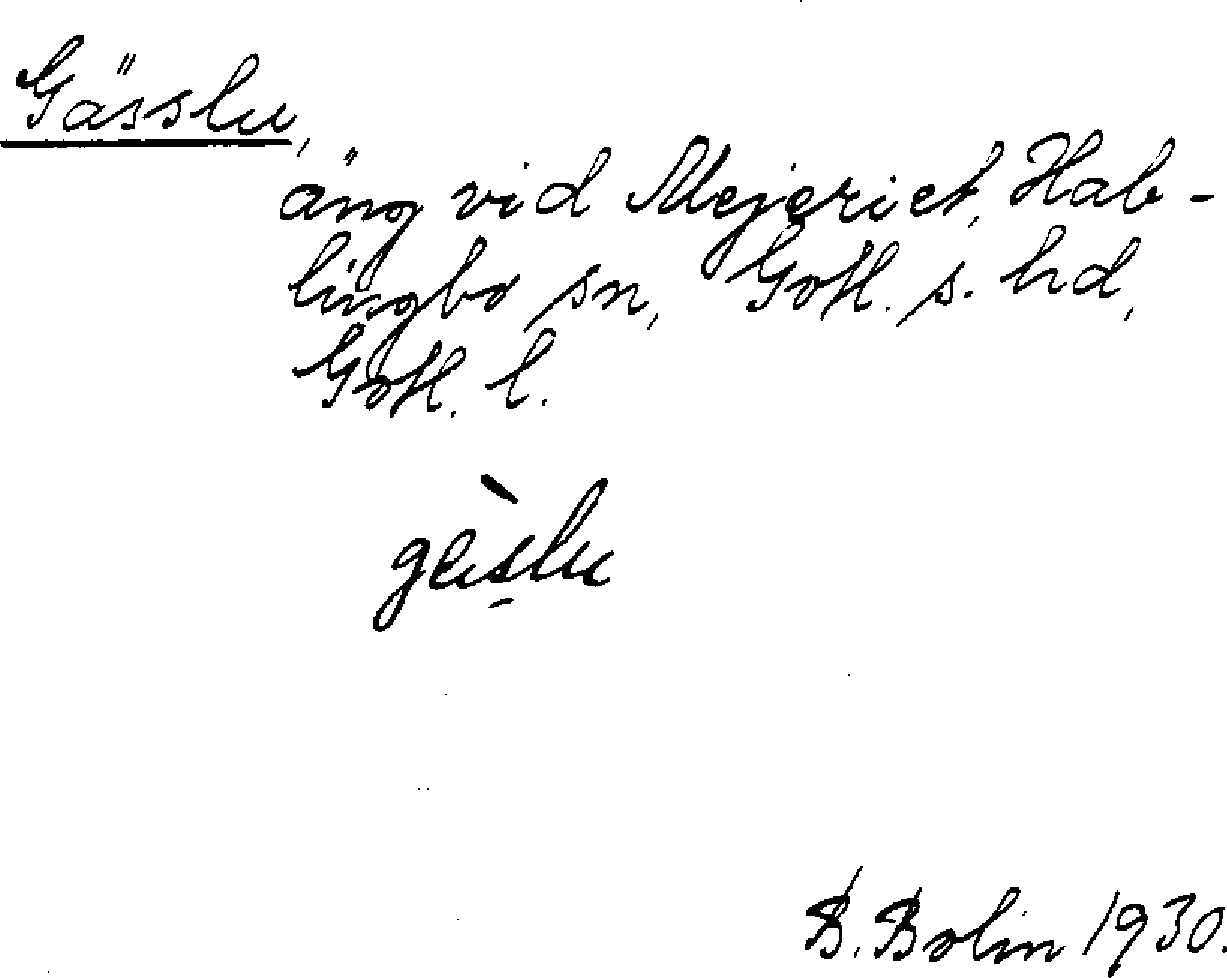 Gässlu,
äng vid Mejeriet, Hab-
lingbo sn, Gotl. s. hd,
Gotl. l.
gèslu
B. Bolin 1930.